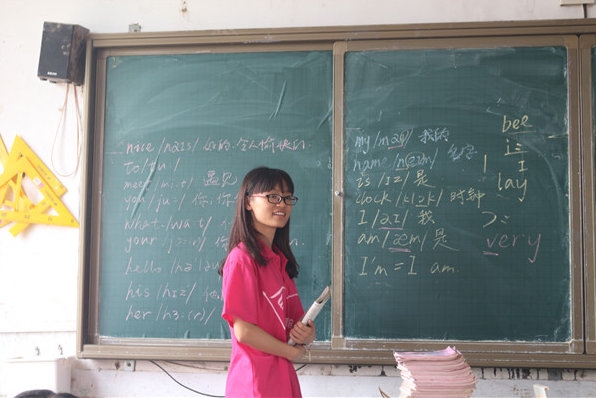 nice /nais/ 好的,令人愉快的
to /tu:/
meet /mi:t/ 遇见
you /ju:/ 你,你
what /wɒt/
your /jɔ:(r)/ 你
hello /hə'l
his /hɪz/ 他
her /h3:(r)/
my /maɪ/ 我的
name /neɪm/ 名字
is /ɪz/ 是
clock /klɒk/ 时钟
I /aɪ/ 我
am /æm/ 是
I'm = I am.
bee
i:
I
lay
very